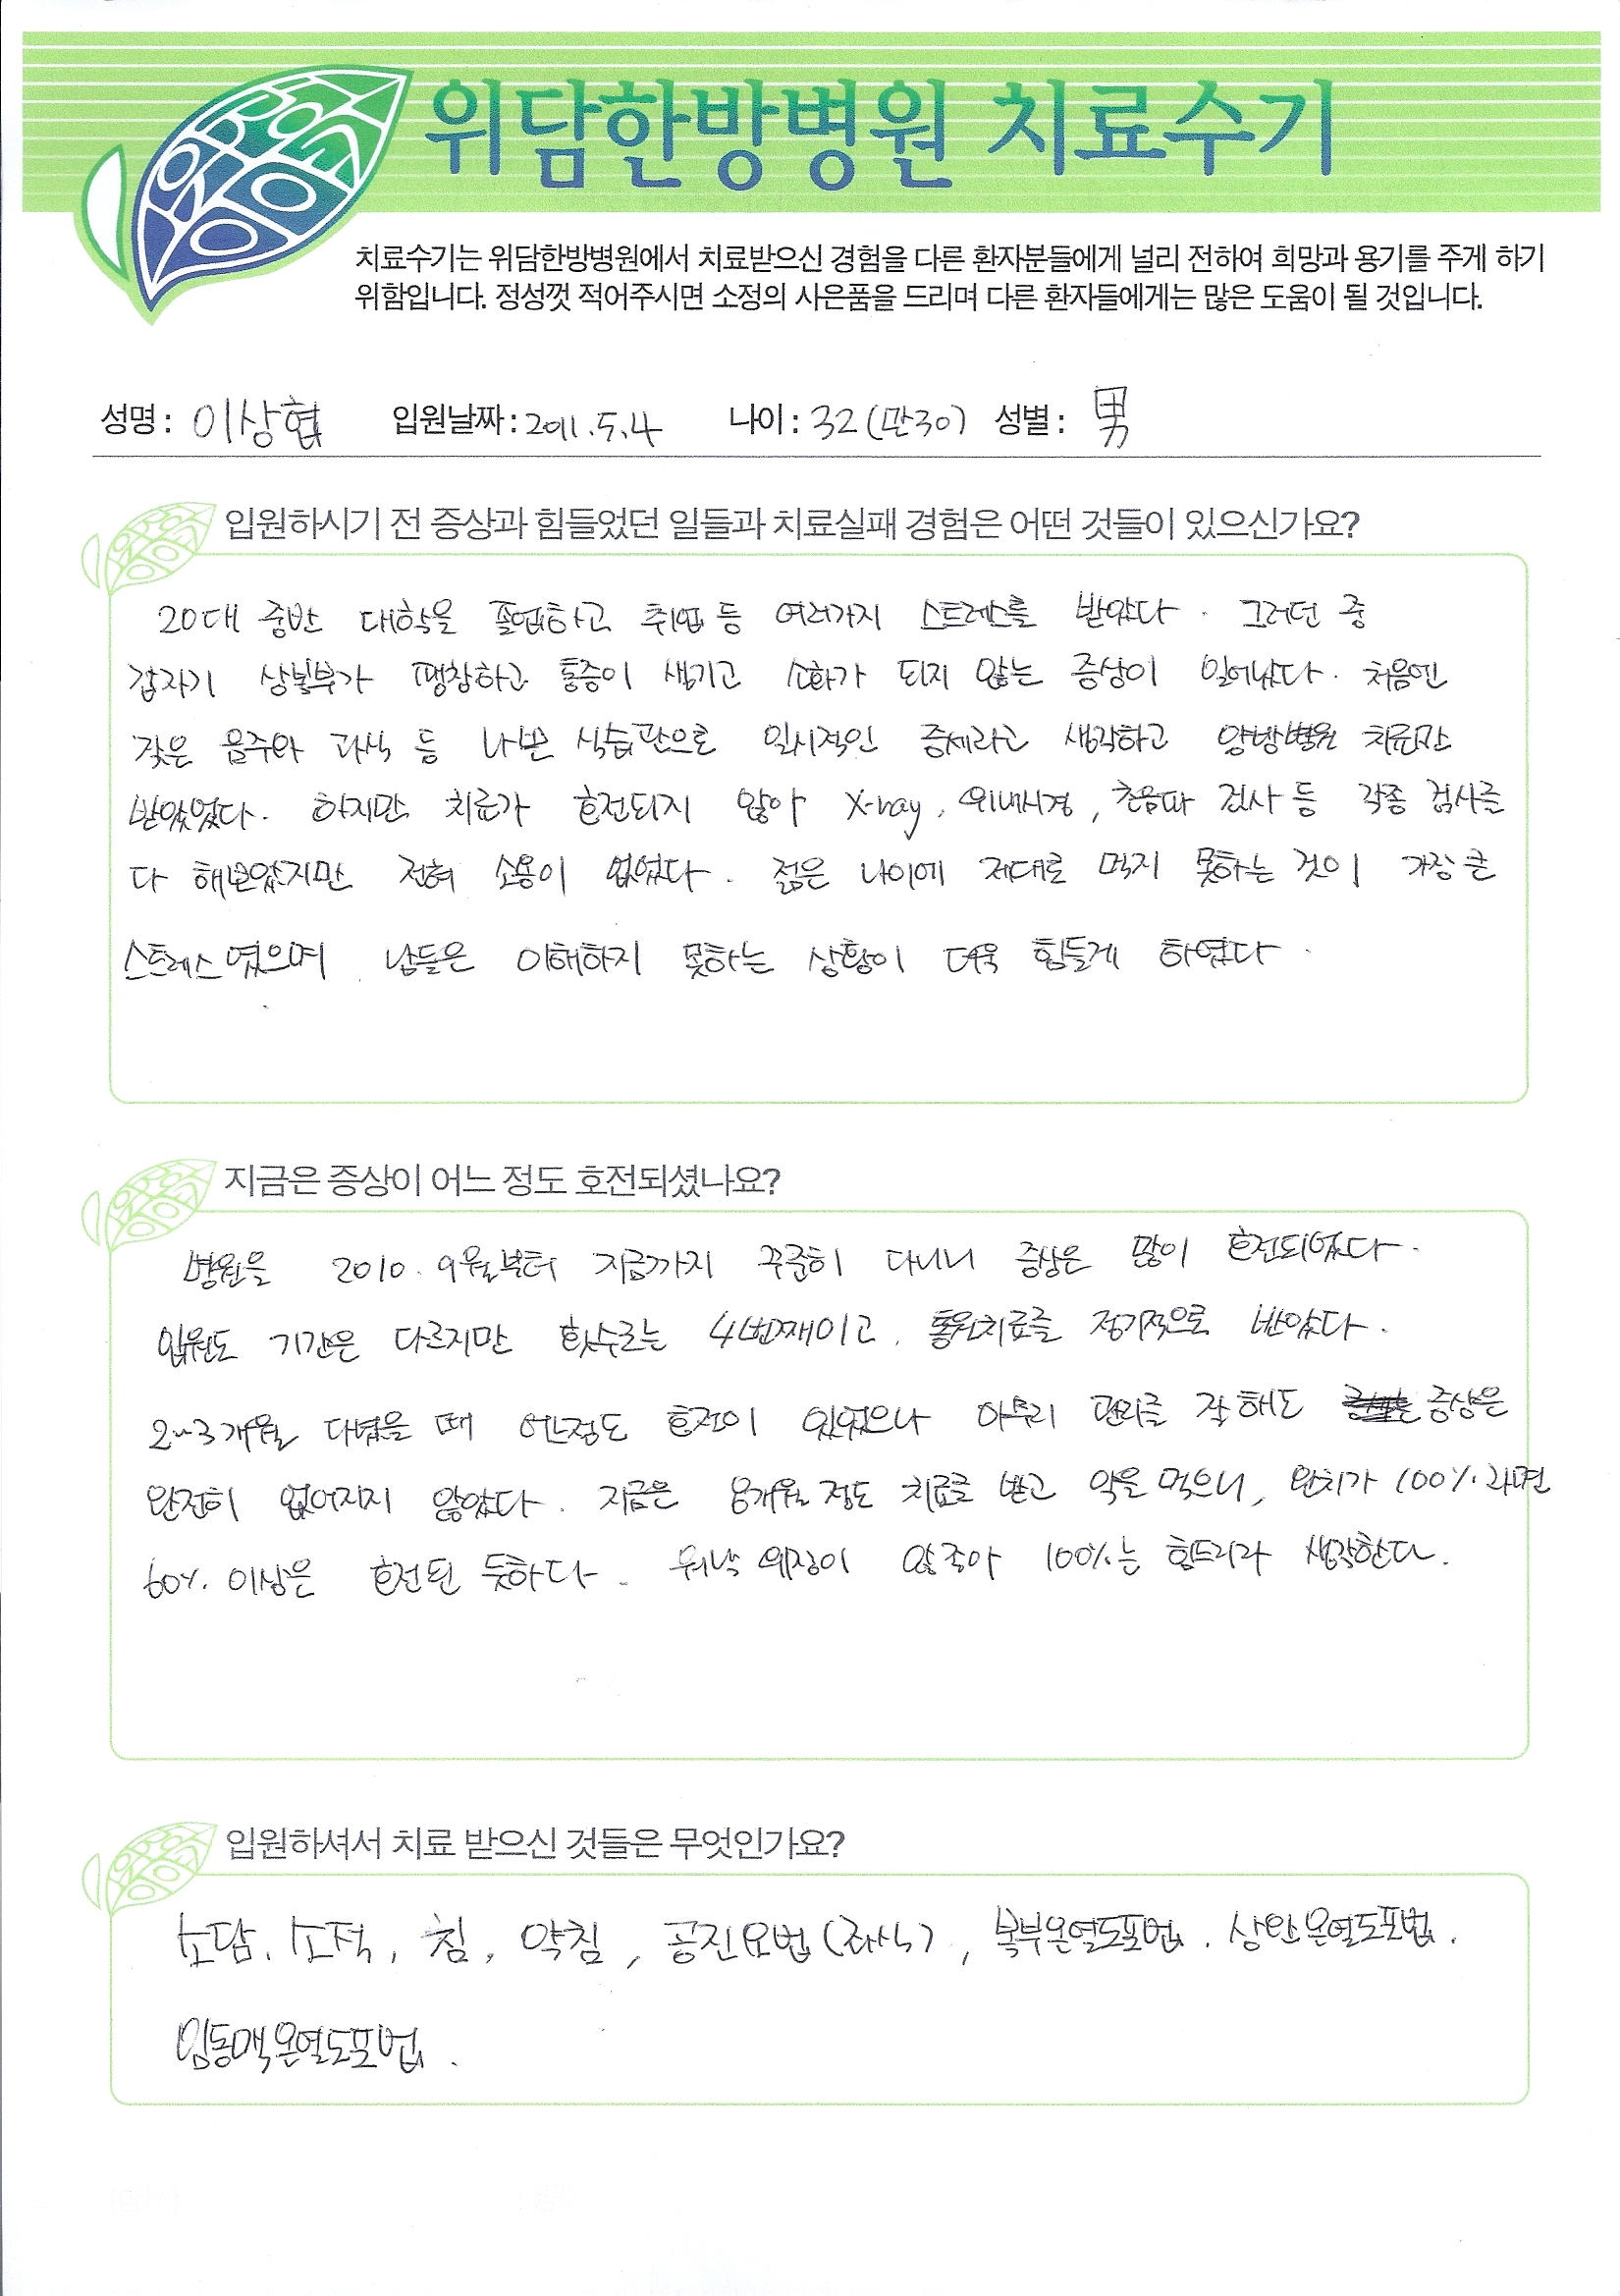 위담한방병원 치료수기
치료수기는 위담한방병원에서 치료받으신 경험을 다른 환자분들에게 널리 전하여 희망과 용기를 주게 하기
위함입니다. 정성껏 적어주시면 소정의 사은품을 드리며 다른 환자들에게는 많은 도움이 될 것입니다.
성명 : 이상협 입원날짜 : 2011. 5. 4 나이 : 32 (만30) 성별 : 男
입원하시기 전 증상과 힘들었던 일들과 치료실패 경험은 어떤 것들이 있으신가요?
20대 중반 대학을 졸업하고 취업 등 여러가지 스트레스를 받았다. 그러던 중
갑자기 상복부가 팽창하고 통증이 생기고 소화가 되지 않는 증상이 일어났다. 처음엔
잦은 음주와 과식 등 나쁜 식습관으로 일시적인 증세라고 생각하고 양방병원 치료만
받았었다. 하지만 치료가 호전되지 않아 X-ray, 위내시경, 초음파 검사 등 각종 검사를
다 해보았지만 전혀 소용이 없었다. 젊은 나이에 제대로 먹지 못하는 것이 가장 큰
스트레스였으며 남들은 이해하지 못하는 상황이 더욱 힘들게 하였다.
지금은 증상이 어느 정도 호전되셨나요?
병원을 2010. 9월부터 지금까지 꾸준히 다니니 증상은 많이 호전되었다.
입원도 기간은 다르지만 횟수로는 4번째이고, 통원치료를 정기적으로 받았다.
2~3개월 다녔을 때 어느정도 호전이 있었으나 아무리 관리를 잘 해도 증상은
완전히 없어지지 않았다. 지금은 8개월 정도 치료를 받고 약을 먹으니, 완치가 100%라면
60% 이상은 호전된 듯하다. 워낙 위장이 안좋아 100%는 힘드리라 생각한다.
입원하셔서 치료 받으신 것들은 무엇인가요?
소담, 소적, 침, 약침, 공진요법(좌식), 복부온열도포법, 상완온열도포법,
임동맥온열도포법.